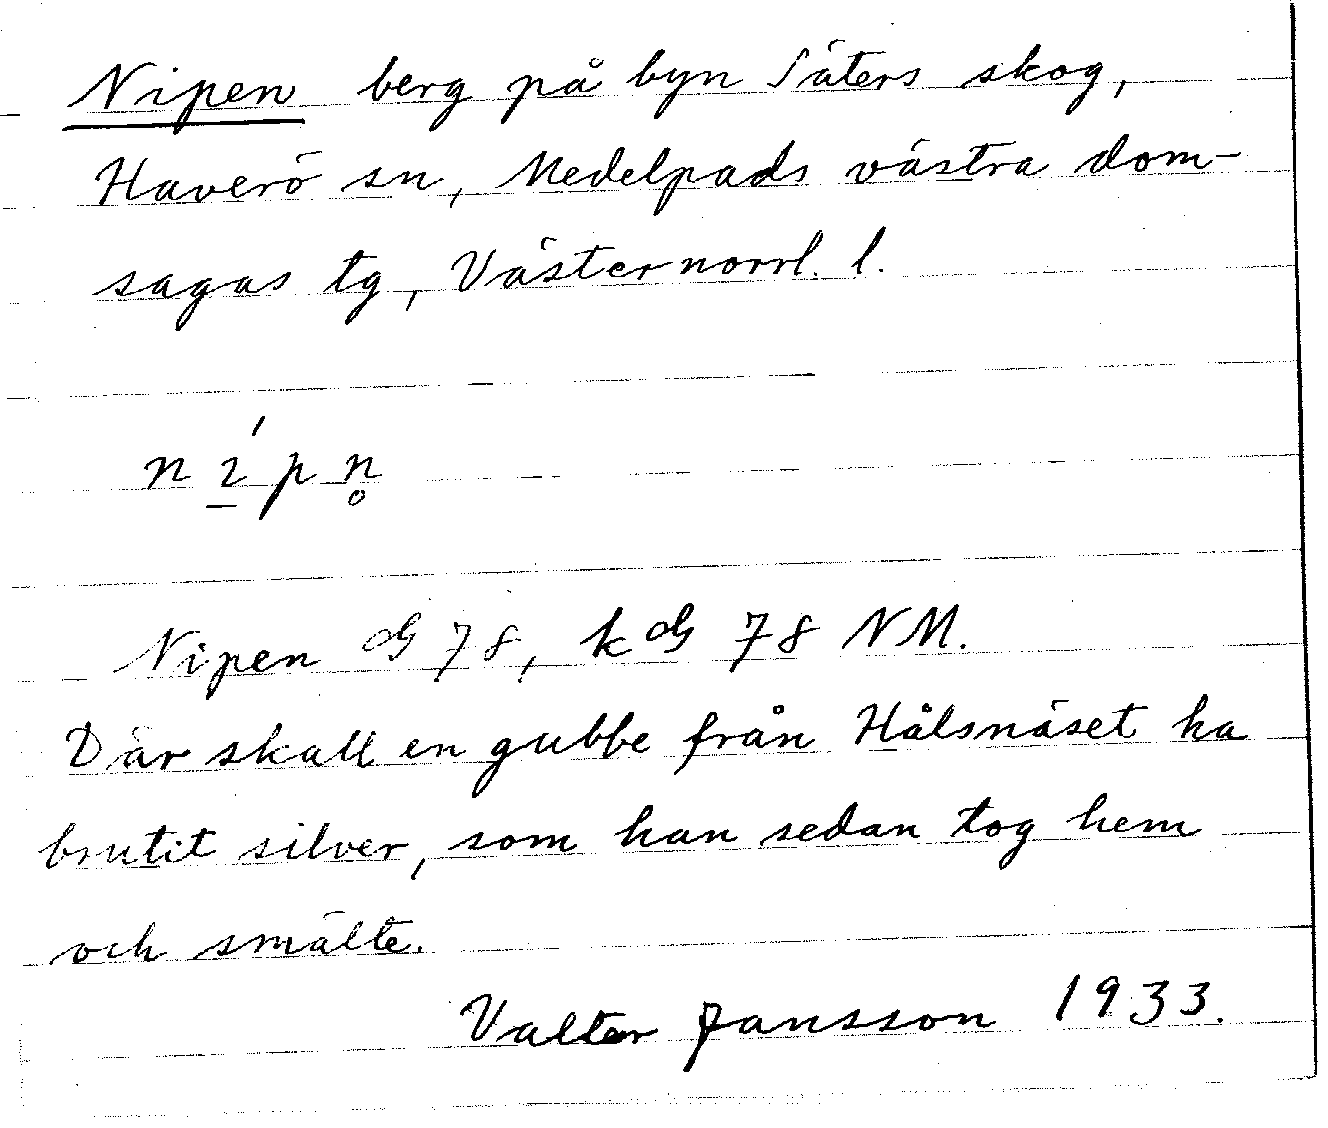 Nipen berg på byn Säters skog,
Haverö sn, Medelpads västra dom-
sagas tg, Västernorrl. l.
nı̱́pn̥
Nipen G 78, k G 78 NM.
Där skall en gubbe från Hålsnäset ha
brutit silver, som han sedan tog hem
och smälte.
Valter Jansson 1933.